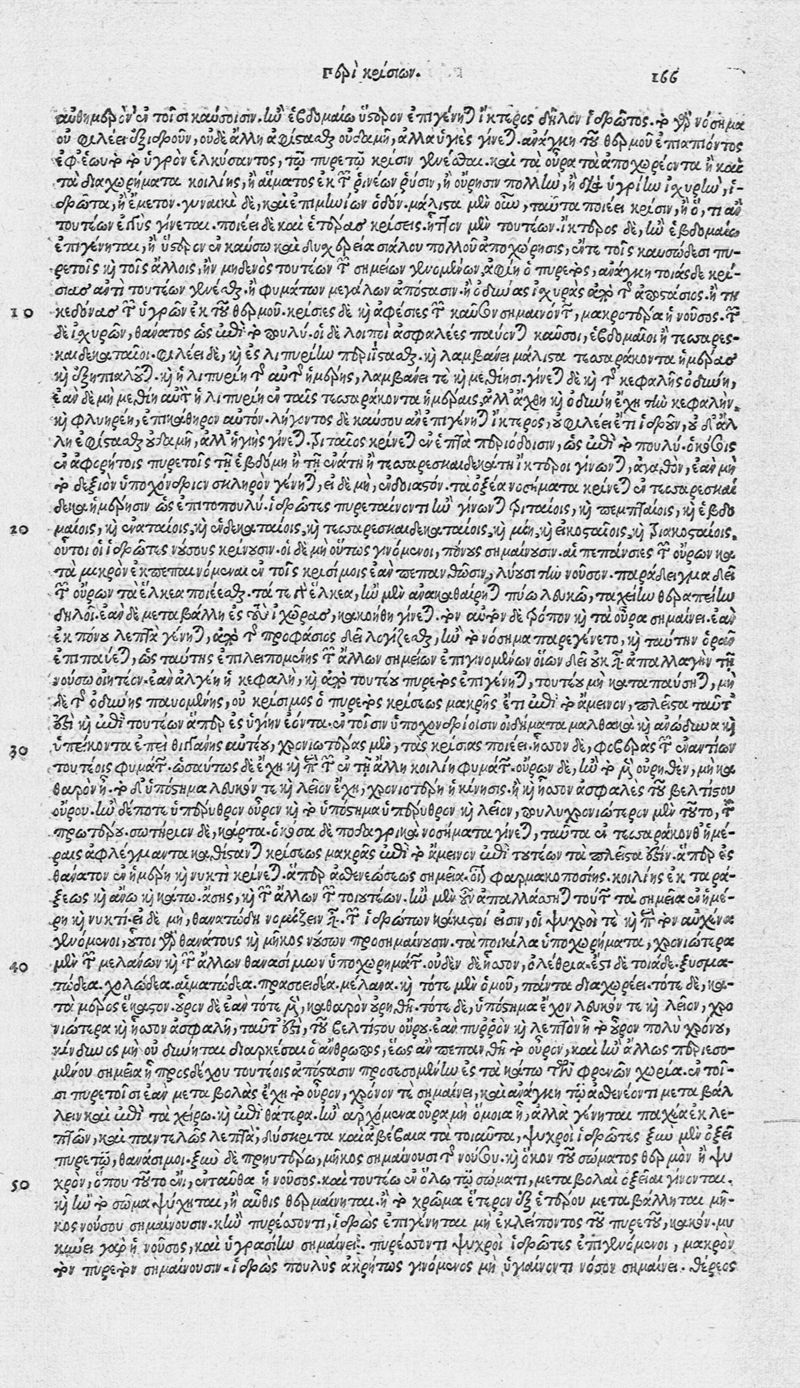 Περὶ κρισίων. 166
αὐθημερὸν ἐν τοῖσι καύσοισιν. ἢν ἑβδομαίῳ ὕστερον ἐπιγένηται ἴκτερος δῆλον ἱδρῶτος. τὸ γὰρ νόσημα
οὐ φιλέει ἐξιδροῦν, οὐδὲ ἄλλη ἀφίστασθαι οὐδαμῆ, ἀλλὰ ὑγιὲς γίνεται. ἀνάγκη τοῦ θερμοῦ ἐπιπίπτοντος
ἐφ' ἑωυτὸ τὸ ὑγρὸν ἑλκύσαντος, τῷ πυρετῷ κρίσιν γενέσθαι. καὶ τὰ οὖρα τὰ ἀποχωρέοντα ἢ καὶ
τὰ διαχωρήματα κοιλίης, ἢ αἵματος ἐκ τῶν ῥινέων ῥύσιν, ἢ οὔρησιν πολλὴν, ἢ διὰ ὑγρίην ἰσχυρὴν, ἱ-
δρῶτα, ἢ ἔμετον. γυναικὶ δὲ, καὶ ἐπιμηνίων ὁδόν. μάλιστα μὲν οὖν, ταῦτα ποιέει κρίσιν, ἢ ὅ, τι ἂν
τουτέων ἐγγὺς γίνεται. ποιέει δὲ καὶ ἑτέρας κρίσεις. ἧττον μὲν τουτέων. ἴκτερος δὲ, ἢν ἑβδομαίῳ
ἐπιγένηται, ἢ ὕστερον ἐν καύσῳ καὶ δυσχέρεια σιάλου πολλοῦ ἀποχώρησις, ἔν τε τοῖς καυσώδεσι πυ-
ρετοῖς καὶ τοῖς ἄλλοις, ἢν μηδενὸς τουτέων τῶν σημείων γενομένων ἀφῇ ὁ πυρετὸς, ἀνάγκη τοιάσδε κρί-
σιας ἀντὶ τουτέων γενέσθαι. ἢ φυμάτων μεγάλων ἀπόστασιν. ἢ ὀδύνας ἰσχυρὰς ἀπὸ τῆς ἀποστάσιος. ἢ τη
10 κεδόνας τῶν ὑγρῶν ἐκ τοῦ θερμοῦ. κρίσιες δὲ καὶ ἀφέσιες τῶν καύσων σημαίνονται, μακροτέρα ἢ νοῦσος. τῶν
δὲ ἰσχυρῶν, θανάτος ὡς ἐπὶ τὸ πουλύ. οἱ δὲ λοιποὶ ἀσφαλέες παύονται καῦσοι, ἑβδομαῖοι ἢ τεσσαρεσ-
καιδεκαταῖοι. φιλέει δὲ, καὶ ἐς λιπυρίην περιίστασθαι. καὶ λαμβάνει μάλιστα τεσσαράκοντα ἡμέρας
καὶ ἐξηπιαλοῦται. καὶ ἡ λιπυρίη τῆς αὐτῆς ἡμέρης, λαμβάνει τε καὶ μεθίησι. γίνεται δὲ καὶ τῆς κεφαλῆς ὀδύνη,
ἐὰν δὲ μὴ μεθίῃ αὐτὸν ἡ λιπυρίη ἐν ταῖς τεσσαράκοντα ἡμέραις, ἀλλ' ἄχθη καὶ ὀδύνη ἔχῃ τὴν κεφαλὴν,
καὶ φλυηρέῃ, ἐπικάθηρον αὐτόν. λήγοντος δὲ καύσου ἂν ἐπιγένηται ἴκτερος, οὐ φιλέει ἔτι ἱδροῦν, οὐδ' ἄλ
λῃ ἀφίστασθαι οὐδαμῆ, ἀλλ' ὑγιὴς γίνεται. τριταῖος κρίνεται ἐν ἑπτὰ περιόδοισιν, ὡς ἐπὶ τὸ πουλύ. ὁκόσοις
ἐν ἀφορήτοις πυρετοῖς τῇ ἑβδόμῃ ἢ τῇ ἐνάτῃ ἢ τεσσαρεσκαιδεκάτῃ ἴκτεροι γίνωνται, ἀγαθὸν, ἐὰν μὴ
τὸ δεξιὸν ὑποχόνδριον σκληρὸν γένηται, εἰ δὲ μὴ, ἐνδοιαστόν. τὰ ὀξέα νοσήματα κρίνεται ἐν τεσσαρεσκαί
δεκα ἡμέρησιν ὡς ἐπιτοπουλύ. ἱδρῶτες πυρεταίνοντι ἢν γίνωνται τριταῖοις, καὶ πεμπταίοις, καὶ ἑβδο
20 μαίοις, καὶ ἐναταίοις, καὶ ἑνδεκαταίοις, καὶ τεσσαρεσκαιδεκαταίοις, καὶ μιῇ, καὶ εἰκοσταίοις, καὶ τριακοσταίοις,
οὗτοι οἱ ἱδρῶτες νούσους κρίνουσιν. οἱ δὲ μὴ οὕτως γινόμενοι, πόνους σημαίνουσιν. αἱ πεπάνσιες τῶν οὔρων κα
τὰ μικρὸν ἐκπεπαινόμεναι ἐν τοῖς κρισίμοις ἐὰν πεπανθῶσιν, λύουσι τὴν νοῦσον. παράδειγμα δεῖ
τῶν οὔρων τὰ ἕλκεα ποιέεσθαι. τά τε γὰρ ἕλκεα, ἢν μὲν ἀνακαθαίρηται πύῳ λευκῷ, ταχείην θεραπείην
δηλοῖ. ἐὰν δὲ μεταβάλλῃ ἐς τοὺς ἰχῶρας, κακοήθη γίνεται. τὸν αὐτὸν δὲ τρόπον καὶ τὰ οὖρα σημαίνει. ἐὰν
ἐκ πόνου λεπτὰ γένηται, ἀπὸ τῆς προφάσιος δεῖ λογίζεσθαι, ἢν τὸ νόσημα παρεγένετο, καὶ ταύτην ὁρᾶν
ἐπιπαύεται, ὡς ταύτης ἐπιλειπομένης τῶν ἄλλων σημείων ἐπιγινομένων οἵων δεῖ οὐκ ἔστι ἀπαλλαγὴν τῇ
νούσῳ οἰητέον. ἐὰν ἀλγέῃ ἡ κεφαλὴ, καὶ ἀπὸ τουτέου πυρετὸς ἐπιγένηται, τουτέου μὴ καταπαύσηται, μὴ
δὲ τῆς ὀδύνης παυομένης, οὐ κρίσιμος ὁ πυρετὸς κρίσεως μακρῆς ἔτι ἐπὶ τὸ ἄμεινον, πλεῖστα ταῦτ'
ἐστὶ καὶ ἐπὶ τουτέων ἅπερ ἐς ὑγίην ἐόντα. ἐν τοῖσιν ὑποχονδρίοισιν οἰδήματα μαλθακὰ καὶ ἀνώδυνα καὶ
30 ὑπείκοντα ἐπεὶ θιγγάνῃς αὐτέου, χρονιωτέρας μὲν, τὰς κρίσιας ποιέει. ἧσσον δὲ, φοβερὰς τῶν ἐναντίων
τουτέοις φυμάτων. ὡσαύτως δὲ ἔχῃ καὶ περὶ τῶν ἐν τῇ ἄλλῃ κοιλίῃ φυμάτων. οὔρων δὲ, ἢν τὸ μὲν οὐρηθὲν, μὴ κα
θαρὸν ᾖ. τὸ δὲ ὑπόστημα λευκὸν τε καὶ λεῖον ἔχῃ, χρονιωτέρη ἡ κίνησις. ἢ καὶ ἧσσον ἀσφαλὲς τοῦ βελτίσου
οὔρου. ἢν δέ ποτε ὑπέρυθρον οὖρον καὶ τὸ ὑπόστημα ὑπέρυθρον καὶ λεῖον, πουλυχρονιώτερον μὲν τοῦτο, τοῦ
προτέρου. σωτήριον δὲ, κάρτα. ὁκόσα δὲ ποδαγρικὰ νοσήματα γίνεται, ταῦτα ἐν τεσσαράκονθ' ἡμέ-
ραις ἀφλέγμαντα καθίσταται κρίσεως μακρᾶς ἐπὶ τὸ ἄμεινον ἐπὶ τουτέων τὰ πλεῖστα ἐστίν. ἅπερ ἐς
θάνατον ἐν ἡμέρῃ καὶ νυκτὶ κρίνεται. ἅπερ ἀσθενεώσεως σημεῖα. ἀπὸ φαρμακοποσίης. κοιλίης ἐκταρά-
ξεως καὶ ἄνω καὶ κάτω. ἄσης, καὶ τῶν ἄλλων τῶν τοιουτέων. ἢν μὲν οὖν ἀπαλλάσσηται τούτων τὰ σημεῖα ἐν ἡμέ-
ρῃ καὶ νυκτί. εἰ δὲ μὴ, θανατώδη νομίζειν χρή. τῶν ἱδρώτων κάκιστοί εἰσιν, οἱ ψυχροί τε καὶ περὶ τὸν αὐχένα
γενόμενοι, οὗτοι γὰρ θανάτους καὶ μῆκος νούσων προσημαίνουσιν. τὰ ποικίλα ὑποχωρήματα, χρονιώτερα
40 μὲν τῶν μελάνων καὶ τῶν ἄλλων θανασίμων ὑποχωρημάτων. οὐδὲν δὲ ἧσσον, ὀλέθρια. ἔστι δὲ τοιάδε. ξυσμα-
τώδεα. χολώδεα. αἱματώδεα. πρασοειδέα. μέλανα. καὶ τότε μὲν ὁμοῦ, πάντα διαχωρέει. τότε δὲ, κα-
τὰ μέρος ἕκαστον. οὖρον δὲ ἐὰν τότε μὲν, καθαρὸν οὐρηθῇ. τότε δὲ, ὑπόστημα ἔχον λευκόν τε καὶ λεῖον, χρο
νιώτερα καὶ ἧσσον ἀσφαλῆ, ταῦτ' ἐστὶ, τοῦ βελτίστου οὔρου. ἐὰν πυρρὸν καὶ λεπτὸν ᾖ τὸ οὖρον πολὺν χρόνον,
κίνδυνος μὴ οὐ δύνηται διαρκέσαι ὁ ἄνθρωπος, ἕως ἂν πεπανθῇ τὸ οὖρον, καὶ ἢν ἄλλως περιεσο-
μένου σημεῖα ᾖ προσδέχου τουτέοις ἀπόστασιν προσεσομένην ἐς τὰ κάτω τῶν φρενῶν χωρία. ἐν τοῖ-
σι πυρετοῖσι ἐὰν μεταβολὰς ἔχῃ τὸ οὖρον, χρόνον τὲ σημαίνει, καὶ ἀνάγκη τῷ ἀσθενέοντι μεταβάλ
λειν καὶ ἐπὶ τὰ χείρω. καὶ ἐπὶ θάτερα. ἢν ἀρχόμενα οὖρα μὴ ὅμοια ᾖ, ἀλλὰ γένηται παχέα ἐκ λε-
πτῶν, καὶ παντελῶς λεπτὰ, δύσκριτα καὶ ἀβέβαια τὰ τοιαῦτα, ψυχροὶ ἱδρῶτες ξὺν μὲν ὀξεῖ
πυρετῷ, θανάσιμοι. ξὺν δὲ πρηυτέρῳ, μῆκος σημαίνουσι τῆς νούσου. καὶ ὁκον τοῦ σώματος θερμὸν ἢ ψυ
50 χρὸν, ὅπου τοῦτο ἔνι, ἐνταῦθα ἡ νοῦσος. καὶ τουτέῳ ἐν ὅλῳ τῷ σώματι, μεταβολαὶ ὀξεῖαι γίνονται,
καὶ ἢν τὸ σῶμα ψύχηται, ἢ αὖθις θερμαίνηται. ἢ τὸ χρῶμα ἕτερον ἐξ ἑτέρου μεταβάλληται μῆ-
κος νούσου σημαίνουσιν. κἢν πυρέσσοντι, ἱδρὼς ἐπιγένηται μὴ ἐκλείποντος τοῦ πυρετοῦ, κακόν. μη
κύνει γὰρ ἡ νοῦσος, καὶ ὑγρασίην σημαίνει. πυρέσσοντι ψυχροὶ ἱδρῶτες ἐπιγενόμενοι, μακρὸν
τὸν πυρετὸν σημαίνουσιν. ἱδρὼς πουλὺς ἀκρήτως γινόμενος μὴ ὑγιαίνοντι νόσον σημαίνει. θέρεος